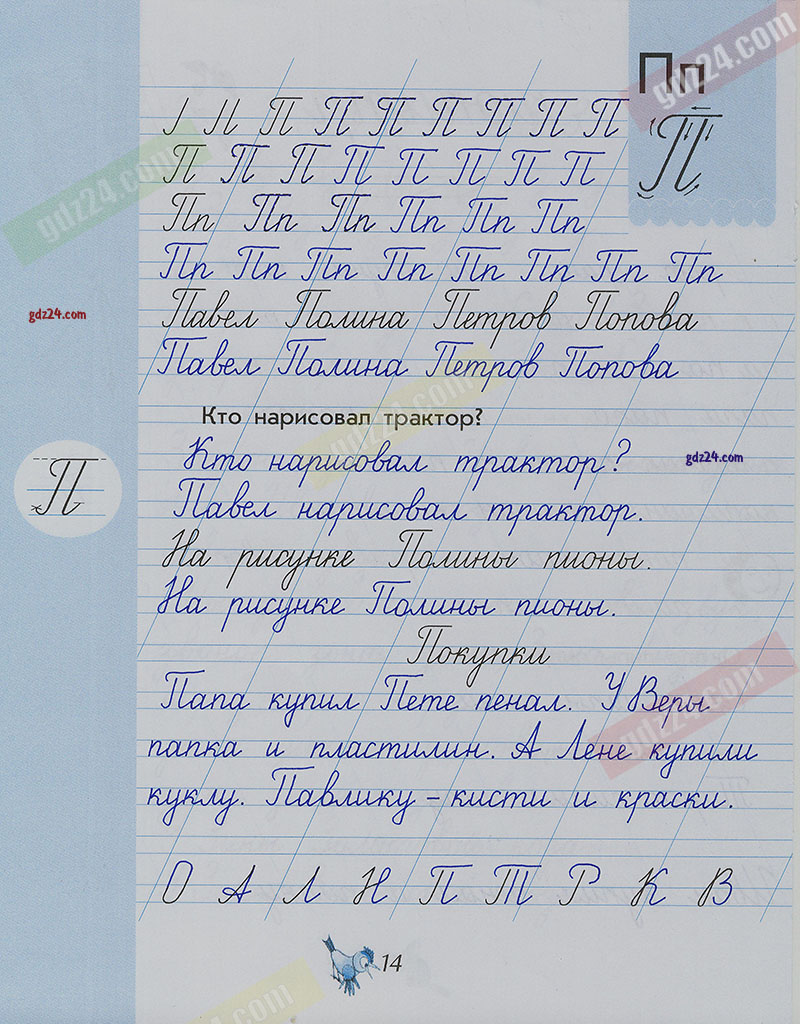 Пп
gdz24.com
П
І И П П П П П П П
П П П П П П П П
gdz24.com
Пп Пп Пп Пп Пп Пп
Пп Пп Пп Пп Пп Пп Пп Пп
gdz24.com
Павел Полина Петров Попова
Павел Полина Петров Попова
gdz24.com
Кто нарисовал трактор?
Кто нарисовал трактор?
gdz24.com
П
Павел нарисовал трактор.
На рисунке Полины пионы.
На рисунке Полины пионы.
Покупки
Папа купил Пете пенал. У Веры
gdz24.com
папка и пластилин. А Лене купили
куклу. Павлику – кисти и краски.
О А Л Н П Т Р К В
14
gdz24.com